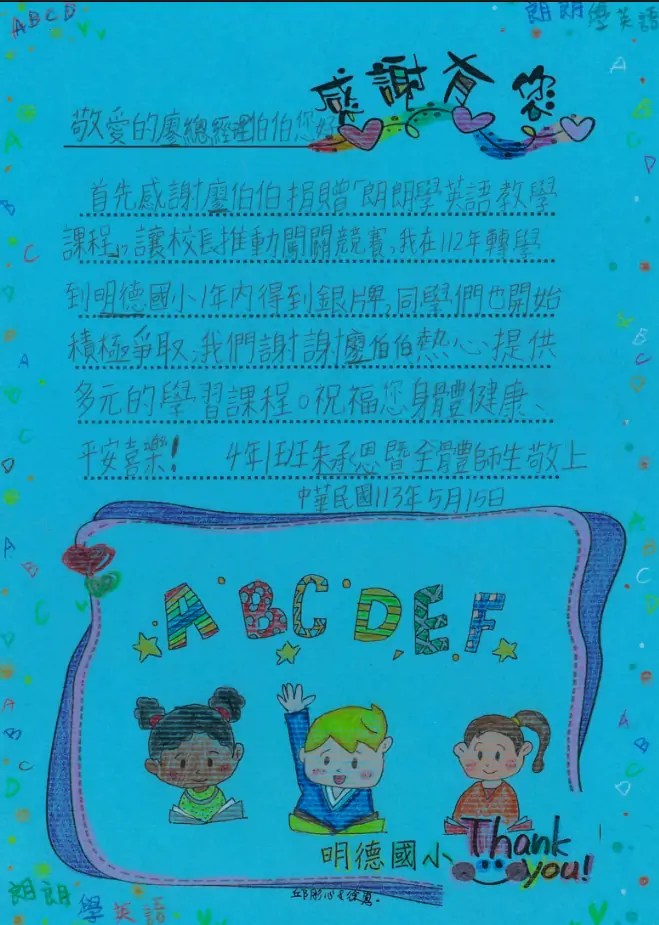 ABCD
朗朗學英語
感謝有您
敬愛的廖總經理伯伯您好
首先感謝廖伯伯捐贈「朗朗學英語教學
課程」,讓校長推動闖關競賽,我在112年轉學
到明德國小1年內得到銀牌,同學們也開始
積極爭取,我們謝謝廖伯伯熱心提供
多元的學習課程。祝福您身體健康、
平安喜樂!  4年1班朱承恩暨全體師生敬上
中華民國113年5月15日
ABCDEF
明德國小
Thank you!
朗朗學英語